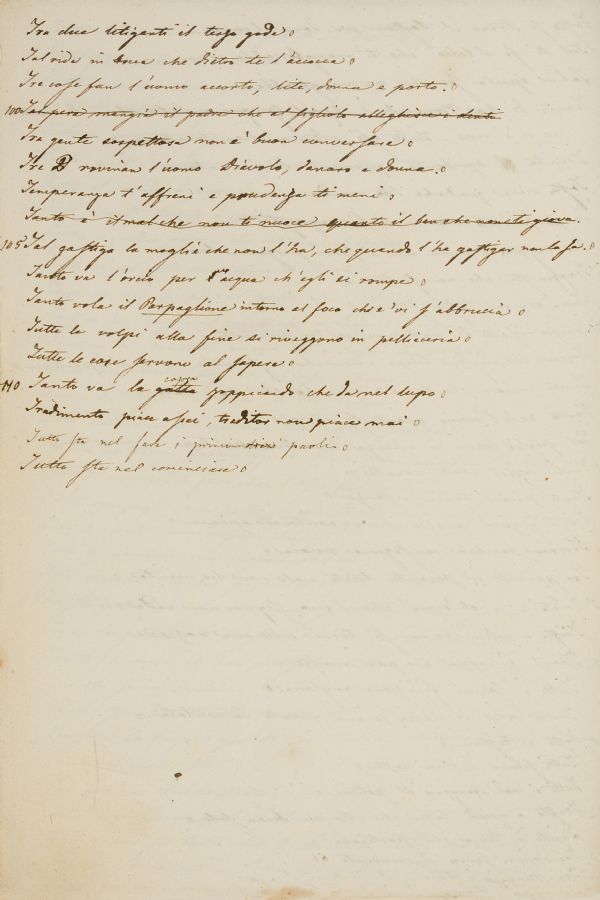 Tra due litiganti il terzo gode
Tal ride in bocca che dietro te l'accocca
Tre cose fan l'uomo accorto, lite, donna e porto.
100 Tal pera mangia il padre che al figliolo allegano i denti
Tra gente sospettosa non è buon conversare
Tre D rovinan l'uomo Diavolo, danaro e donna.
Temperanza t'affreni e prudenza ti meni
Tanto è il mal che non ti nuoce quanto il ben che non ti giova.
105 Tal gastiga la moglie che non l'ha, che quando l'ha gastigar non la sa.
Tanto va l'orcio per l'acqua ch'egli si rompe
Tanto vola il Parpaglione intorno al foco che vi s'abbrucia
Tutte le volpi alla fine si riveggono in pellicceria
Tutte le cose servono al sapere
110 Tanto va la gatta capra zoppicando che da nel lupo
Tradimento piace assai, traditor non piace mai
Tutto sta nel fare i primi paoli
Tutto sta nel cominciare